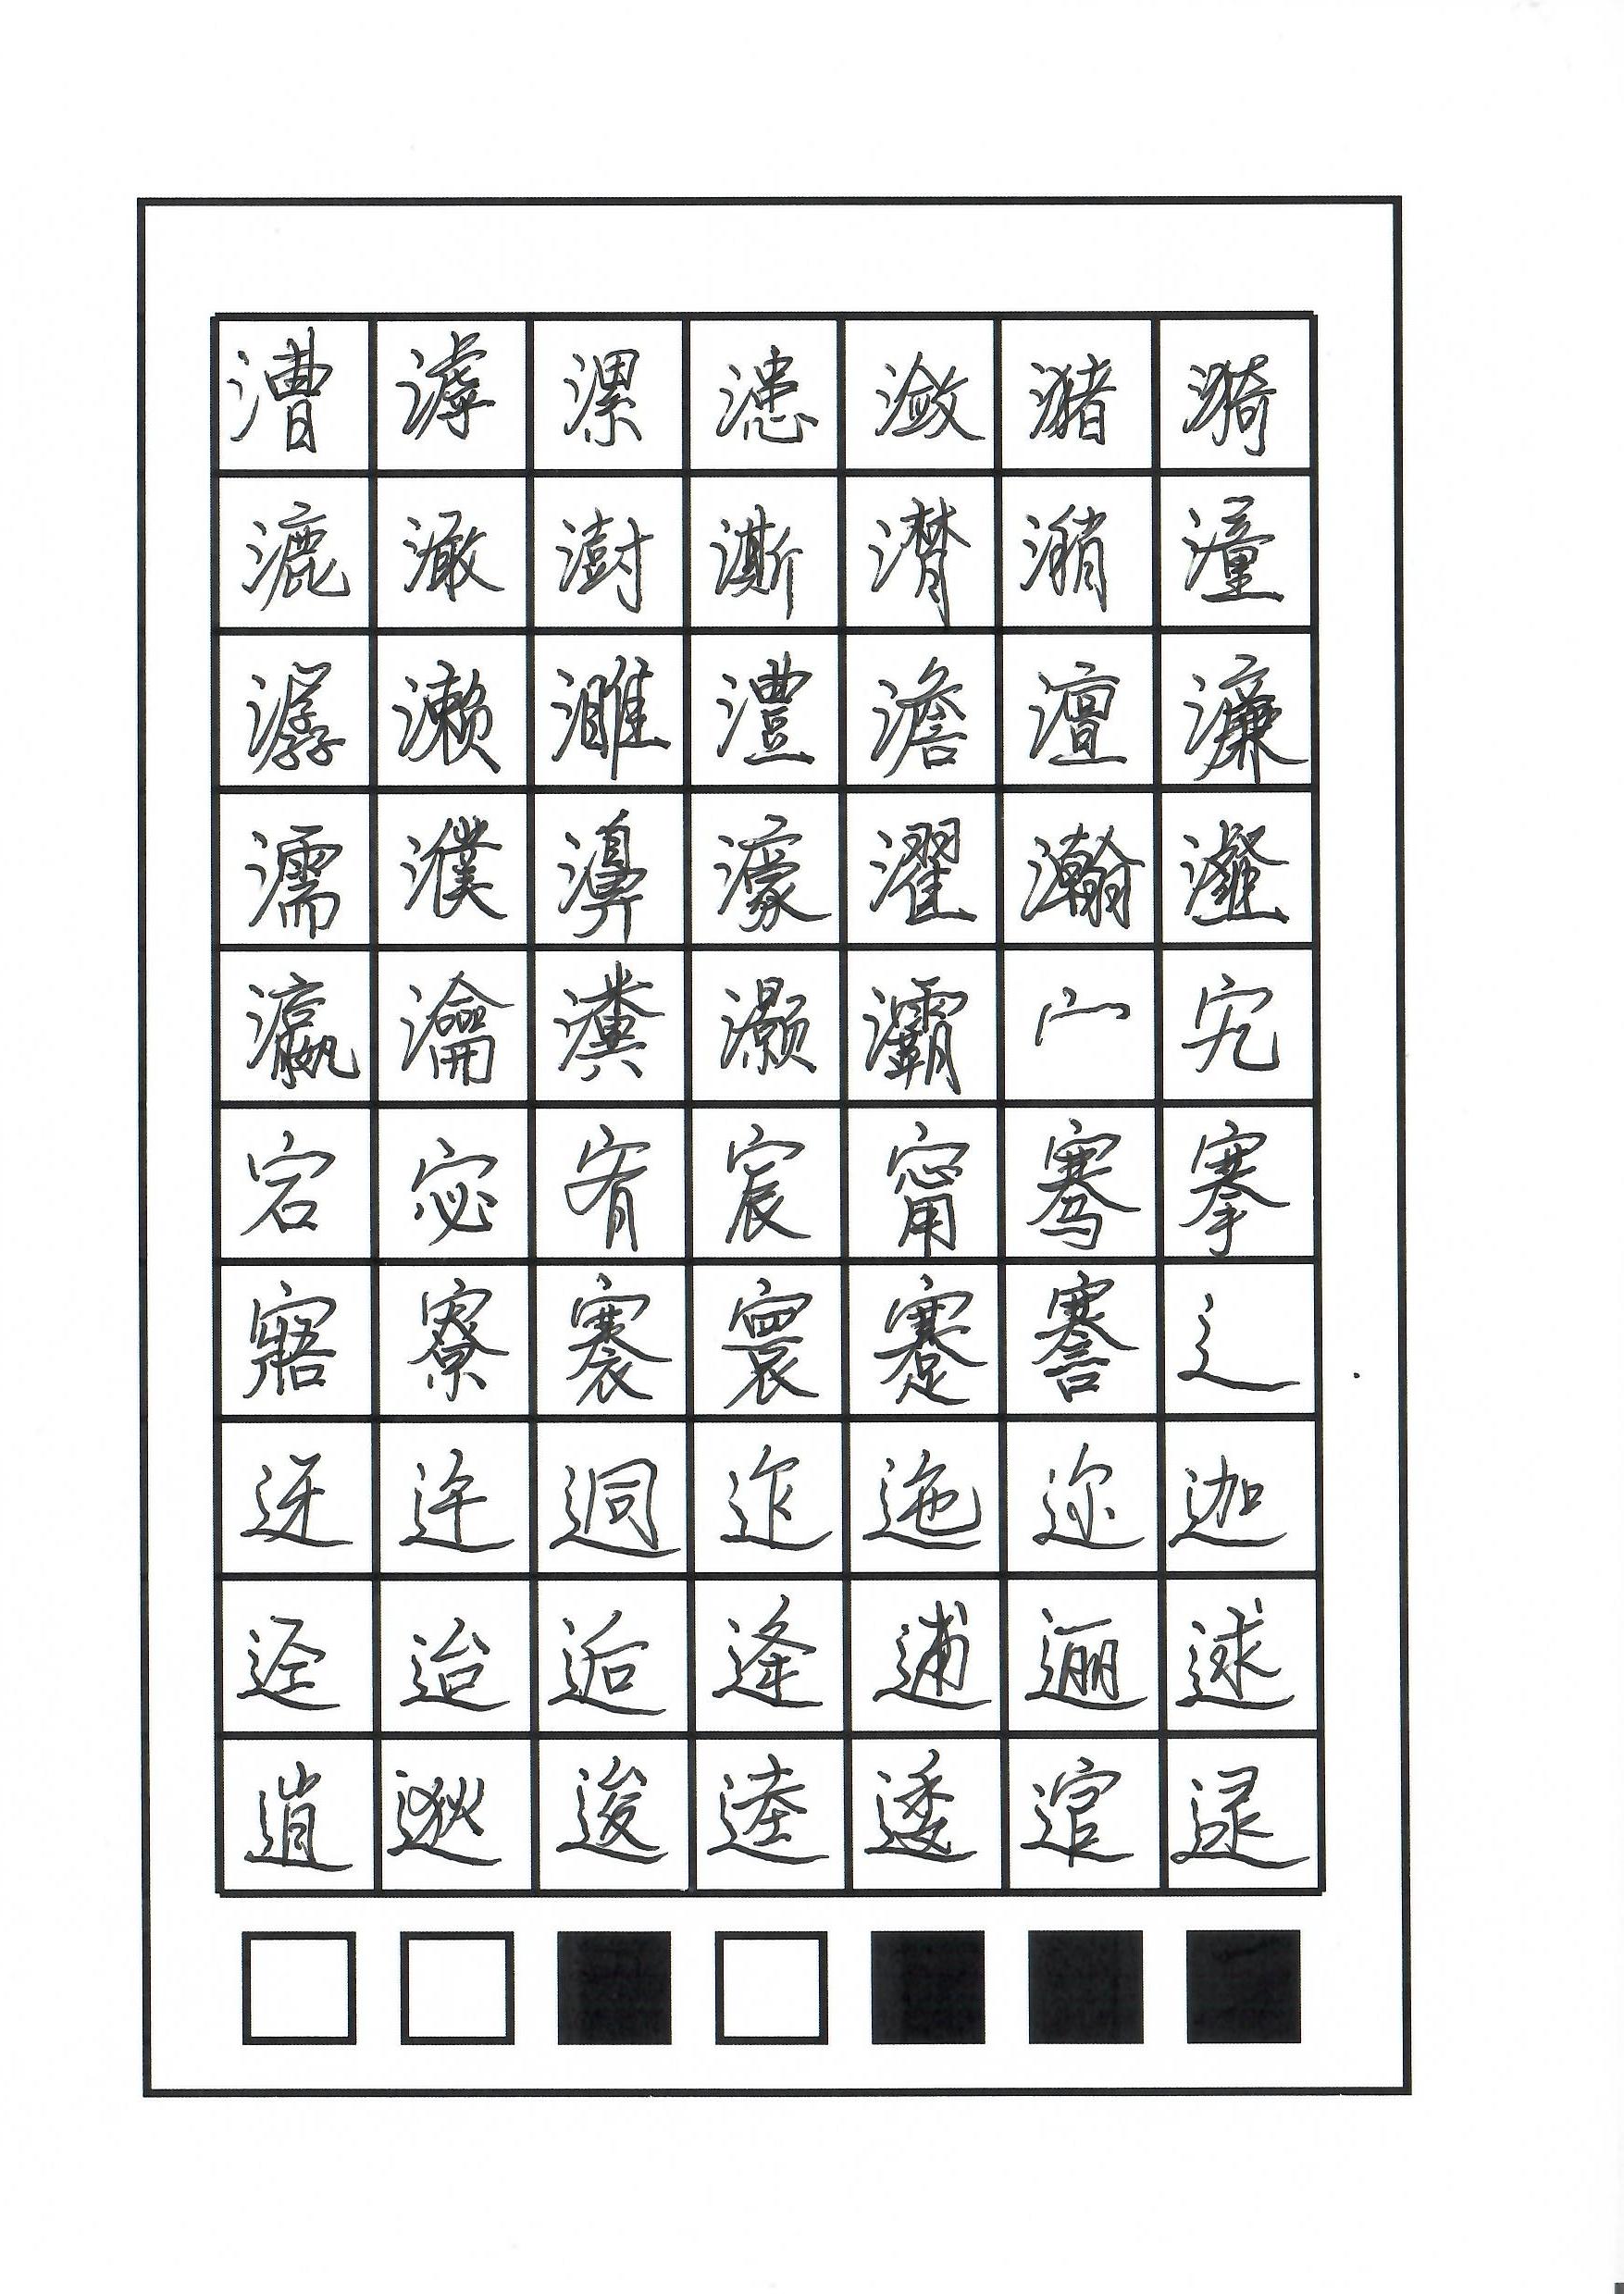 漕滹漯漶潋潴漪
漉澉澍澌潸潲潼
潺濑濉澧澹澶濂
濡濮濞濠濯瀚瀣
瀛瀹瀵灏灞宀宄
宕宓宥宸甯骞搴
寤寮褰寰蹇謇辶
迓迕迥迮迤迩迦
迳迨逅逄逋逦逑
逍逖逡逵逶逭逯